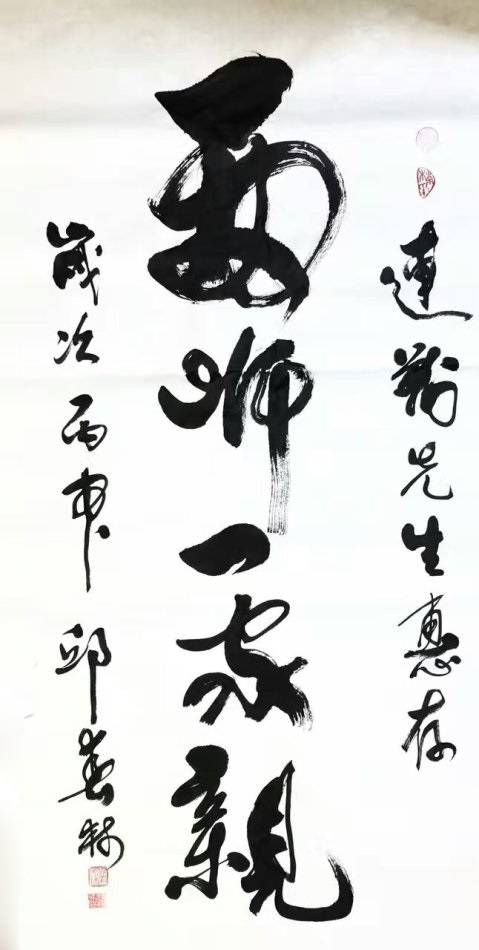 連戰先生惠存
兩岸一家親
歲次丙申 邱春林